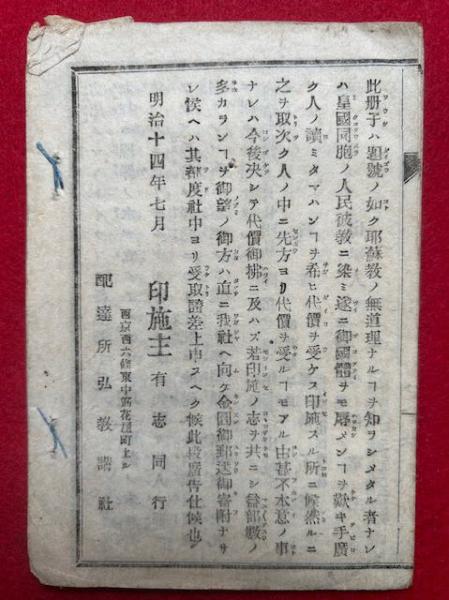 此册子ハ題號ノ如ク耶蘇教ノ無道理ナルヿヲ知ヲシメタル者ナレ
ハ皇國同胞ノ人民彼教ニ染ミ遂ニ御國體ヲモ辱メンヿヲ歎キ手廣
ク人ノ讀ミタマハンヿヲ希ヒ代價ヲ受ケス印施スル所ニ候然ルニ
之ヲ取次ク人ノ中ニ先方ヨリ代價ヲ受ルヿモアル由甚不本意ノ事
ナレハ今後决シテ代價御拂ニ及ハズ若印施ノ志ヲ共ニシ益部數ノ
多カランヿヲ御望ノ御方ハ直ニ我社ヘ向ケ金圓御郵送御寄附ナサ
レ候ヘハ其都度社中ヨリ受取證差上申スヘク候此段廣告仕候也
明治十四年七月
印施主 有志同行
西京西六條東中筋花屋町上ル
配達所弘教講社